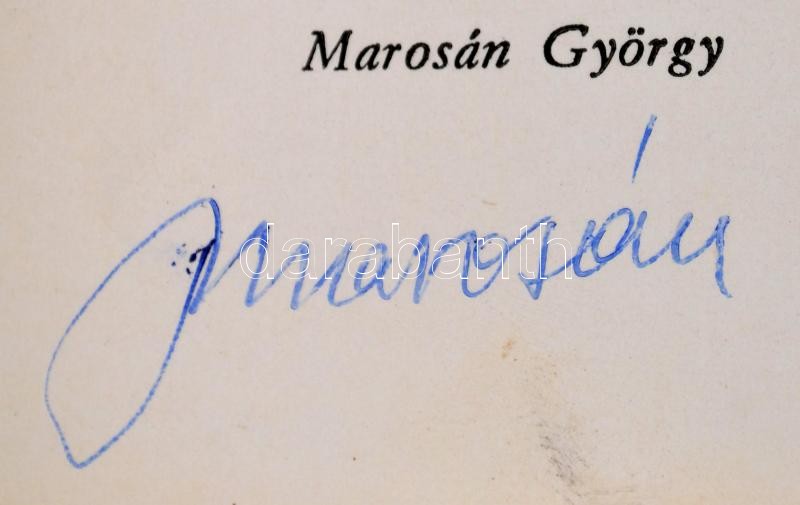 Marosán György
Marosán
darabanth